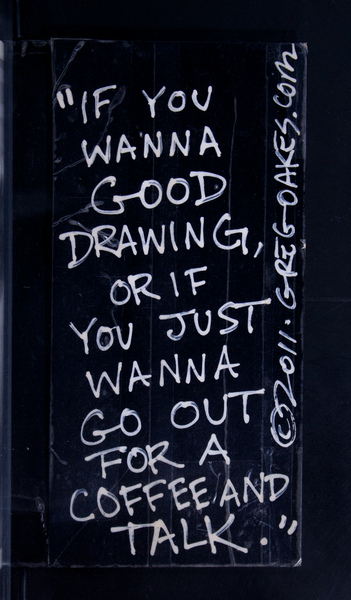 "IF YOU
WANNA
GOOD
DRAWING,
OR IF
YOU JUST
WANNA
GO OUT
FOR A
COFFEE AND
TALK."
©2011. GREGOAKES.COM